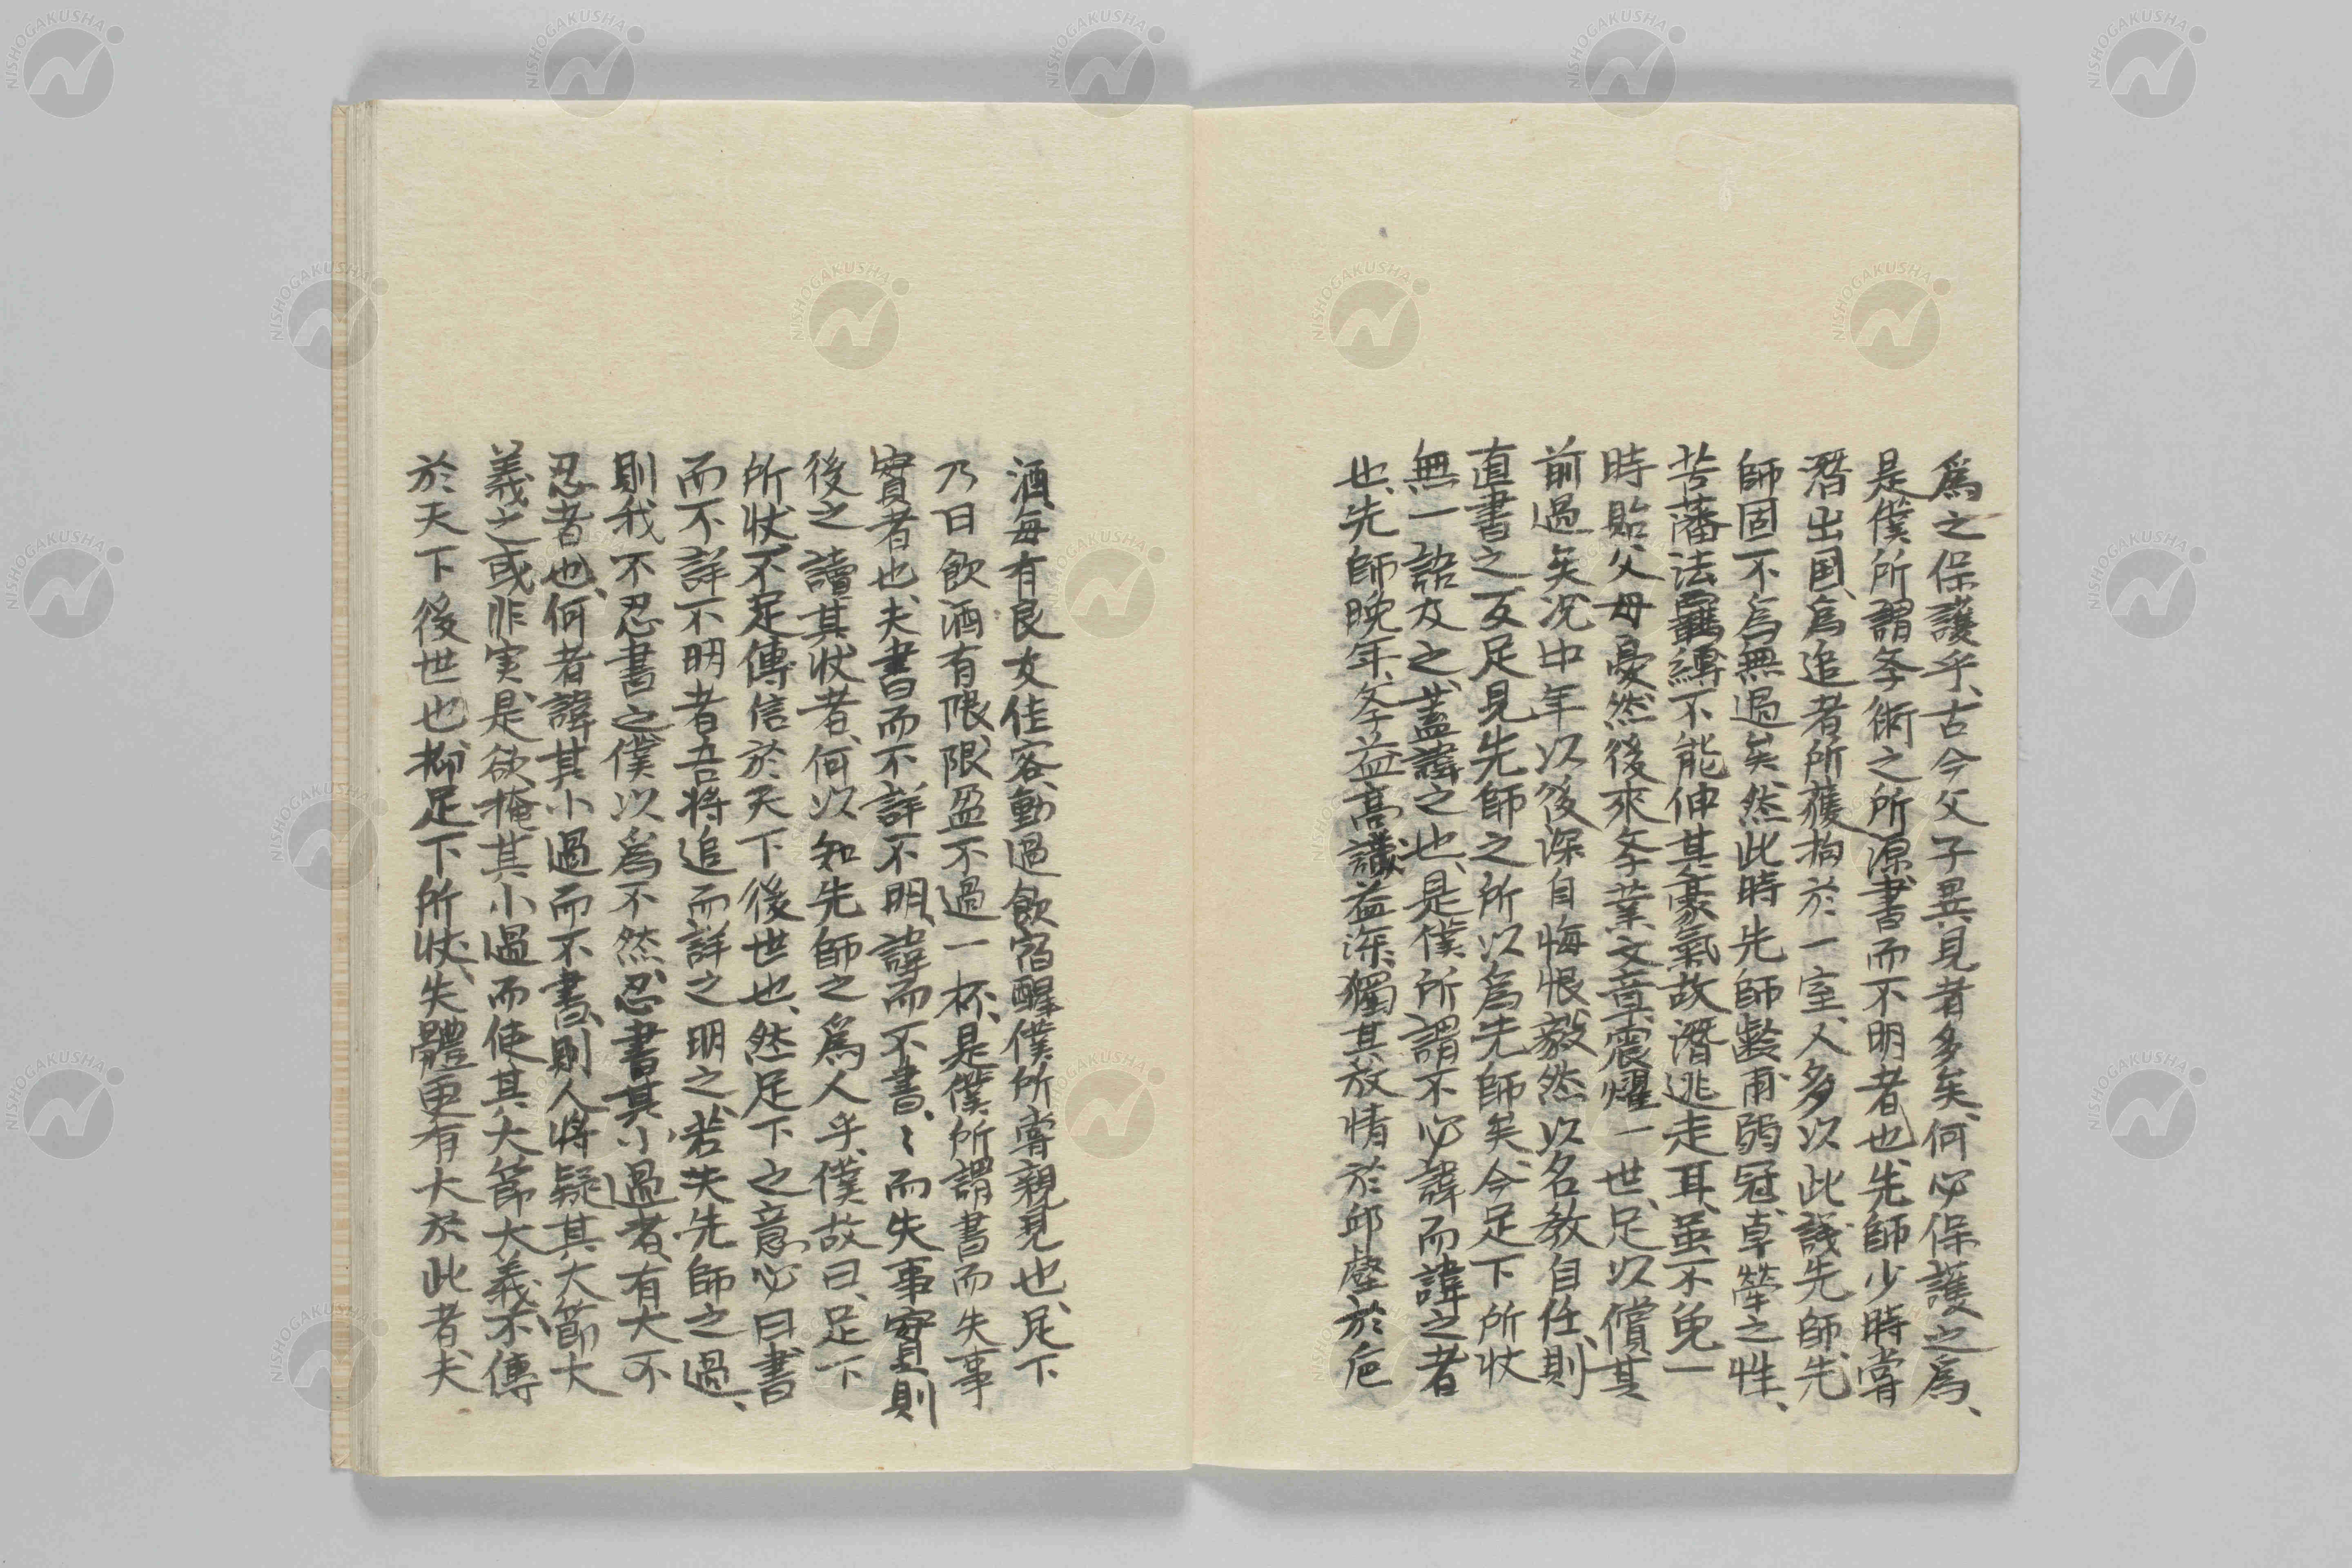 爲之保護乎、古今父子異見者多矣、何必保護之爲、
是僕所謂斈術之所源、書而不明者也、先師少時嘗
潛出国、爲追者所獲、拘於一室、人多以此譏先師、先
師固不爲無過矣、然此時先師齡甫弱冠、卓犖之性、
苦藩法羈縛、不能伸其豪氣、故潛逃走耳、虽不免一
時貽父母憂、然後來斈業文章、震燿一世、足以償其
前過矣、况中年以後、深自悔恨、毅然以名教自任、則
直書之、反足見先師之所以爲先師矣、今足下所狀
無一語及之、蓋諱之也、是僕所謂不必諱而諱之者
也、先師晚年、斈益高、識益深、獨其放情於邱壑、於巵
酒、每有良友佳客、動過飲宿酲、僕所嘗親見也、足下
乃曰飲酒有限、限盈不過一杯、是僕所謂書而失事
實者也、夫書而不詳不明、諱而不書、〻而失事實、則
後之讀其狀者、何以知先師之爲人乎、僕故曰、足下
所狀、不足傳信於天下後世也、然足下之意必曰、書
而不詳不明者、吾将追而詳之明之、若夫先師之過、
則我不忍書之、僕以爲不然、忍書其小過者、有大不
忍者也、何者、諱其小過而不書、則人将疑其大節大
義之或非実、是欲掩其小過、而使其大節大義、不傳
於天下後世也、抑足下所狀、失體更有大於此者、夫